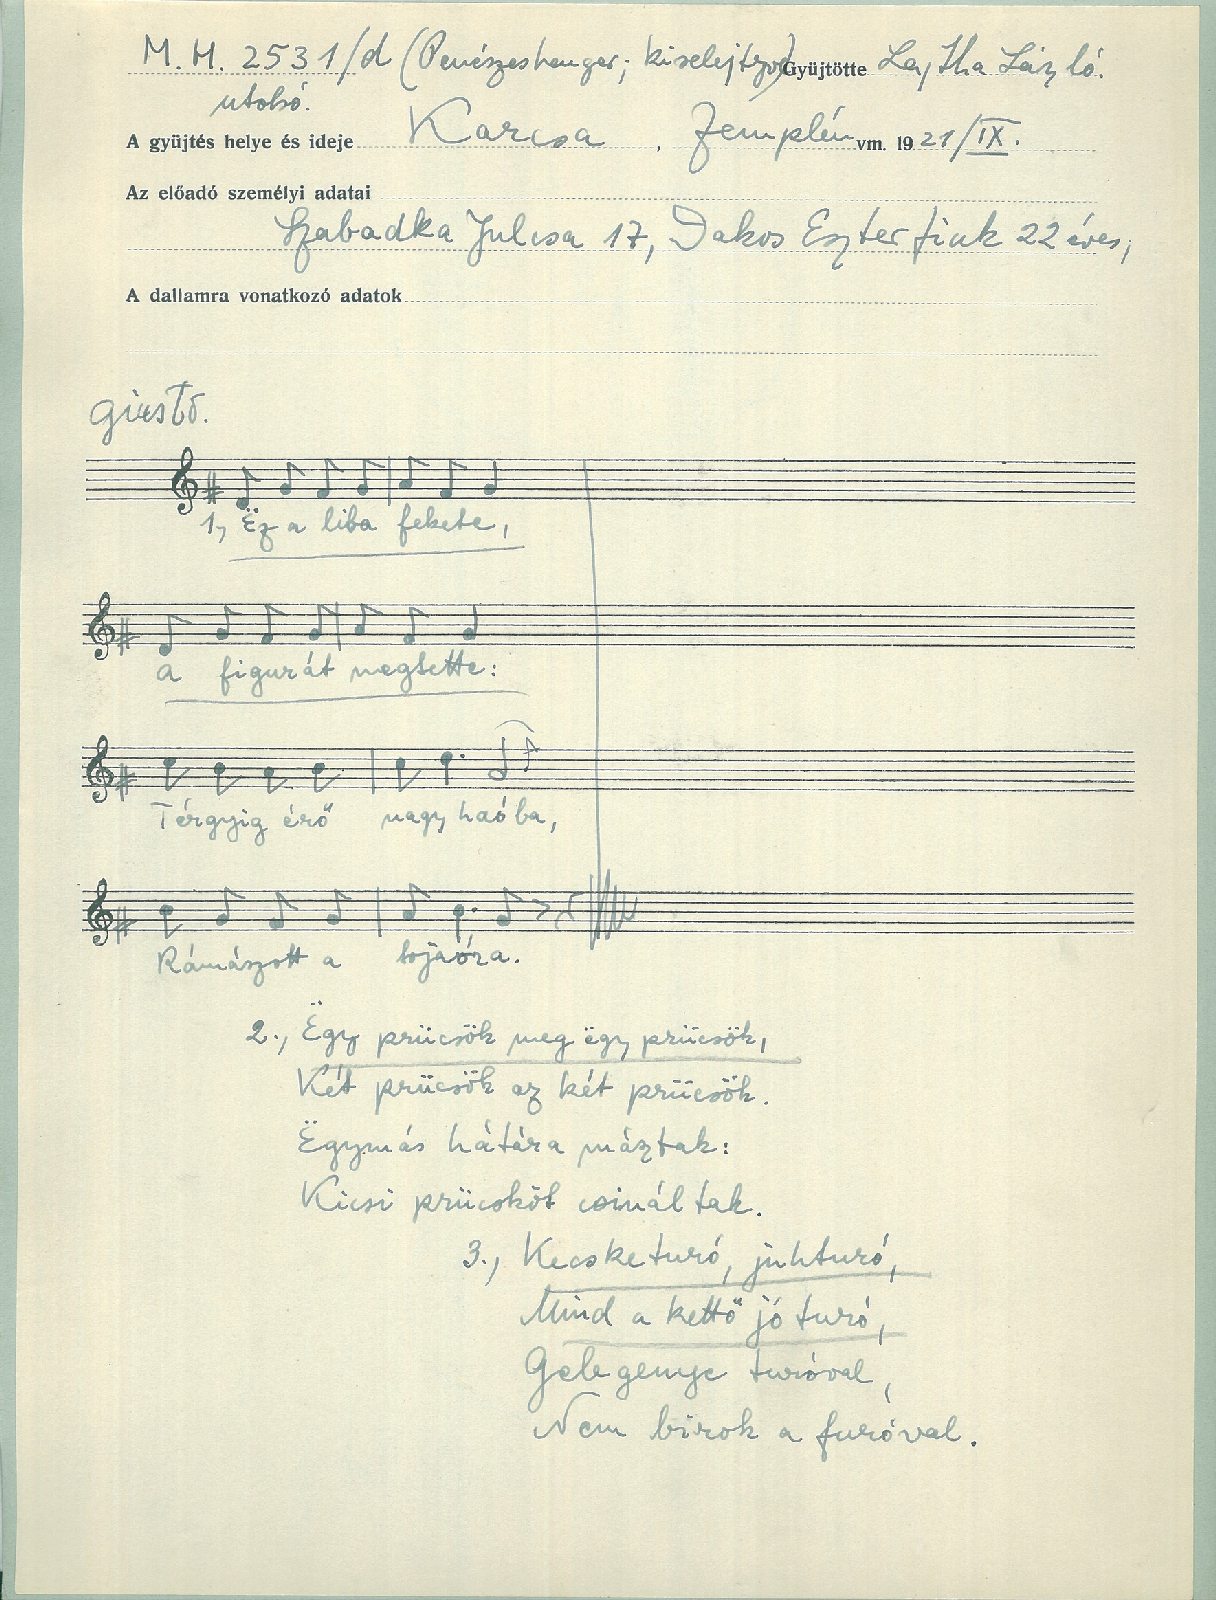 M. H. 2531/d (Penészeshenger; kiselejtezve) Gyüjtötte Lajtha László.
utolsó.
A gyüjtés helye és ideje Karcsa, Zemplén vm. 1921/IX.
Az előadó személyi adatai
Szabadka Julcsa 17, Dakos Eszter 22 éves,
A dallamra vonatkozó adatok
giusto.
1, Ëz a liba fekete,
a figurát megtette:
Térgyig érő nagy haóba,
Rámászott a tojaóra.
2., Ëgy prücsök meg ëgy prücsök,
Két prücsök az két prücsök.
Ëgymás hátára másztak:
Kicsi prücsköt csináltak.
3., Kecsketuró, juhturó,
Mind a kettő jó turó,
turóval,
Nem birok a furóval.